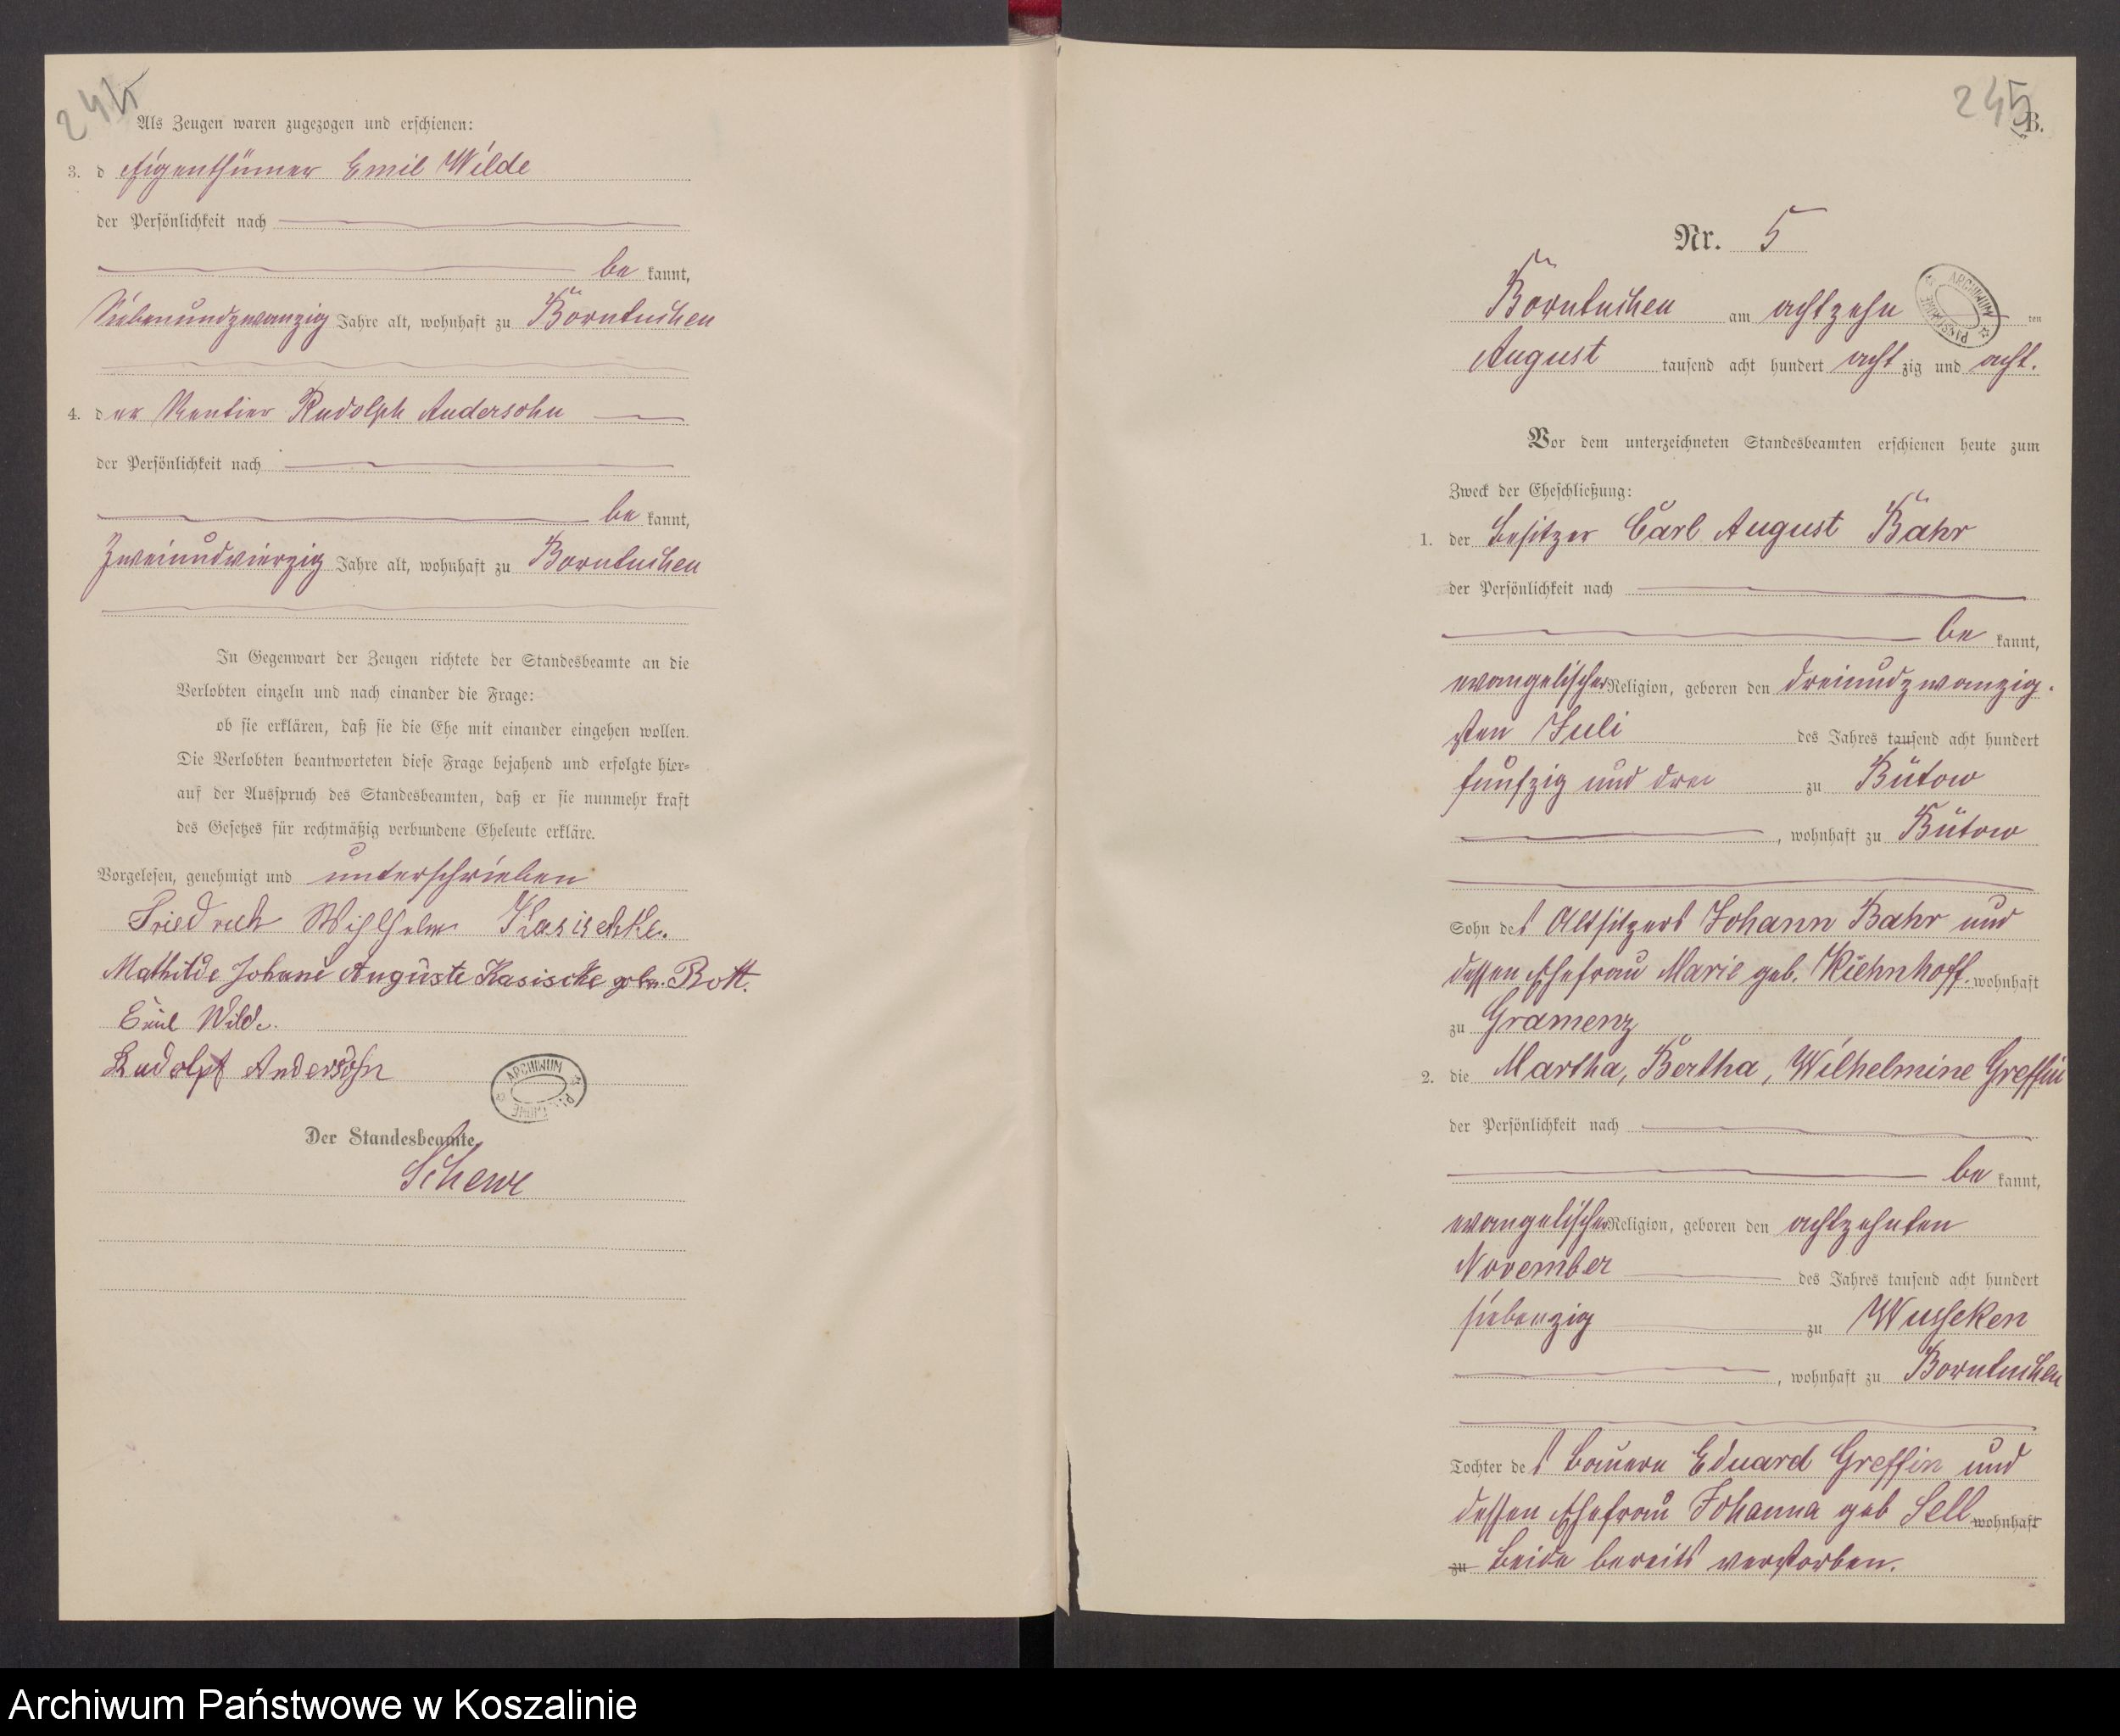 244
Als Zeugen waren zugezogen und erschienen:
3. d Eigenthümer Emil Wilde
der Persönlichkeit nach
be kannt,
Siebenundzwanzig Jahre alt, wohnhaft zu Borntuchen
4. der Rentier Rudolph Andersohn
der Persönlichkeit nach
be kannt,
Zweiundvierzig Jahre alt, wohnhaft zu Borntuchen
In Gegenwart der Zeugen richtete der Standesbeamte an die
Verlobten einzeln und nach einander die Frage:
ob sie erklären, daß sie die Ehe mit einander eingehen wollen.
Die Verlobten beantworteten diese Frage bejahend und erfolgte hier-
auf der Ausspruch des Standesbeamten, daß er sie nunmehr kraft
des Gesetzes für rechtmäßig verbundene Eheleute erkläre.
Vorgelesen, genehmigt und unterschrieben
Friedrich Wilhelm Kasischke.
Mathilde Johane Auguste Kasischke geb. Bott.
Emil Wilde.
Rudolph Andersohn
ARCHIWUM
Der Standesbeamte
Schewe
245
B.
Nr. 5
ARCHIWUM PAŃSTWOWE
Borntuchen am achtzehn ten
August tausend acht hundert acht zig und acht.
Vor dem unterzeichneten Standesbeamten erschienen heute zum
Zweck der Eheschließung:
1. der Besitzer Carl August Bahr
der Persönlichkeit nach
be kannt,
evangelischer Religion, geboren den dreiundzwanzig-
sten Juli des Jahres tausend acht hundert
funfzig und drei zu Bütow
, wohnhaft zu Bütow
Sohn des Altsitzers Johann Bahr und
dessen Ehefrau Marie geb. Kiehnhoff. wohnhaft
zu Gramenz
2. die Martha, Bertha, Wilhelmine Greffin
der Persönlichkeit nach
be kannt,
evangelischer Religion, geboren den achtzehnten
November des Jahres tausend acht hundert
siebenzig zu Wusseken
, wohnhaft zu Borntuchen
Tochter des Bauern Eduard Greffin und
dessen Ehefrau Johanna geb Sell wohnhaft
zu beide bereits verstorben.
Archiwum Państwowe w Koszalinie